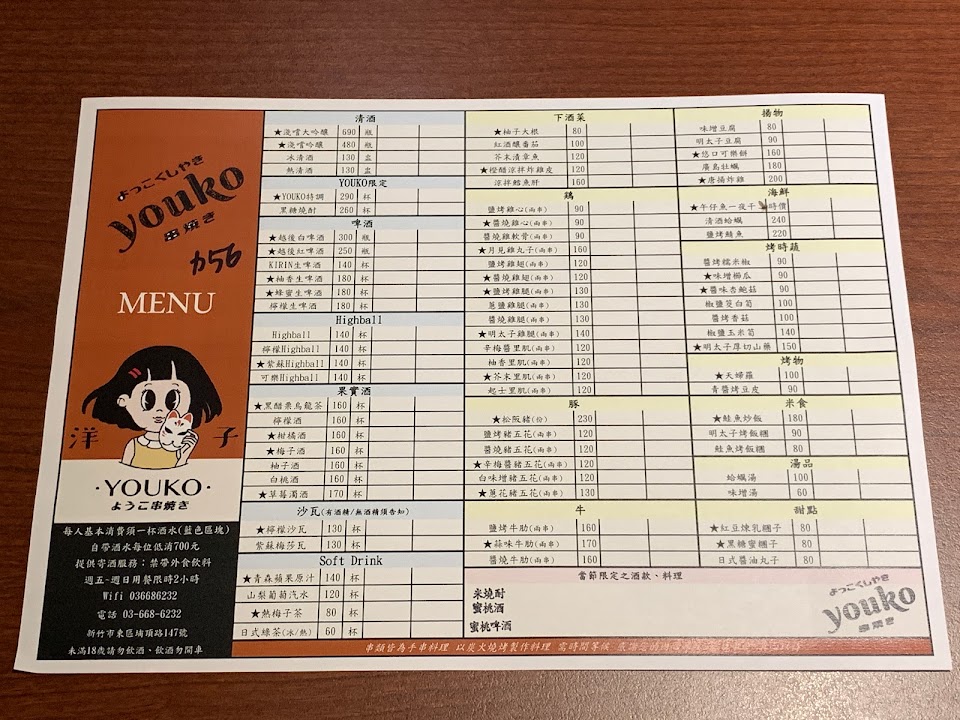 ようこくしやき
youko
串焼き
カ56
MENU
洋 子
·YOUKO·
ようこ串焼き
每人基本消費須一杯酒水(藍色區塊)
自帶酒水每位低消700元
提供寄酒服務；禁帶外食飲料
週五~週日用餐限時2小時
Wifi 036686232
電話 03-668-6232
新竹市東區埔頂路147號
未滿18歲請勿飲酒、飲酒勿開車
清酒
★淺嚐大吟釀 690 瓶
★淺嚐吟釀 480 瓶
冰清酒 130 盅
熱清酒 130 盅
YOUKO限定
★YOUKO特調 290 杯
黑糖燒酎 260 杯
啤酒
★越後白啤酒 300 瓶
★越後紅啤酒 250 瓶
KIRIN生啤酒 140 杯
★柚香生啤酒 180 杯
★蜂蜜生啤酒 180 杯
檸檬生啤酒 180 杯
Highball
Highball 140 杯
檸檬Highball 140 杯
★紫蘇Highball 140 杯
可樂Highball 140 杯
果實酒
★黑醋栗烏龍茶 160 杯
檸檬酒 160 杯
★柑橘酒 160 杯
★梅子酒 160 杯
柚子酒 160 杯
白桃酒 160 杯
★草莓濁酒 170 杯
沙瓦(有酒精/無酒精須告知)
★檸檬沙瓦 130 杯
紫蘇梅莎瓦 130 杯
Soft Drink
★青森蘋果原汁 140 杯
山梨葡萄汽水 120 杯
★熱梅子茶 80 杯
日式綠茶(冰/熱) 60 杯
下酒菜
★柚子大根 80
紅酒釀番茄 100
芥末漬章魚 120
★橙醋涼拌炸雞皮 120
涼拌鱈魚肝 160
鶏
鹽烤雞心(兩串) 90
★醬燒雞心(兩串) 90
醬燒雞軟骨(兩串) 90
★月見雞丸子(兩串) 160
鹽烤雞翅(兩串) 120
★醬燒雞翅(兩串) 120
★鹽烤雞腿(兩串) 130
蔥鹽雞腿(兩串) 130
醬燒雞腿(兩串) 130
★明太子雞腿(兩串) 140
辛梅醬里肌(兩串) 120
柚香里肌(兩串) 120
★芥末里肌(兩串) 120
起士里肌(兩串) 120
豚
★松阪豬(份) 230
鹽烤豬五花(兩串) 120
醬燒豬五花(兩串) 120
★辛梅醬豬五花(兩串) 120
白味增豬五花(兩串) 120
★蔥花豬五花(兩串) 130
牛
鹽烤牛肋(兩串) 160
★蒜味牛肋(兩串) 170
醬燒牛肋(兩串) 160
揚物
味增豆腐 80
明太子豆腐 90
★悠口可樂餅 160
廣島牡蠣 180
★唐揚炸雞 200
海鮮
★午仔魚一夜干 時價
清酒蛤蠣 240
鹽烤鯖魚 220
烤時蔬
醬烤糯米椒 90
★味增櫛瓜 90
★醬味杏鮑菇 90
椒鹽筊白筍 100
醬烤香菇 100
椒鹽玉米筍 140
★明太子厚切山藥 150
烤物
★天婦羅 100
青醬烤豆皮 90
米食
★鮭魚炒飯 180
明太子烤飯糰 90
鮭魚烤飯糰 80
湯品
蛤蠣湯 100
味增湯 60
甜點
★紅豆煉乳糰子 80
★黑糖蜜糰子 80
日式醬油丸子 80
當節限定之酒款、料理
米燒酎
蜜桃酒
蜜桃啤酒
ようこくしやき
youko
串焼き
串類皆為手串料理 以炭火燒烤製作料理 需時間等候